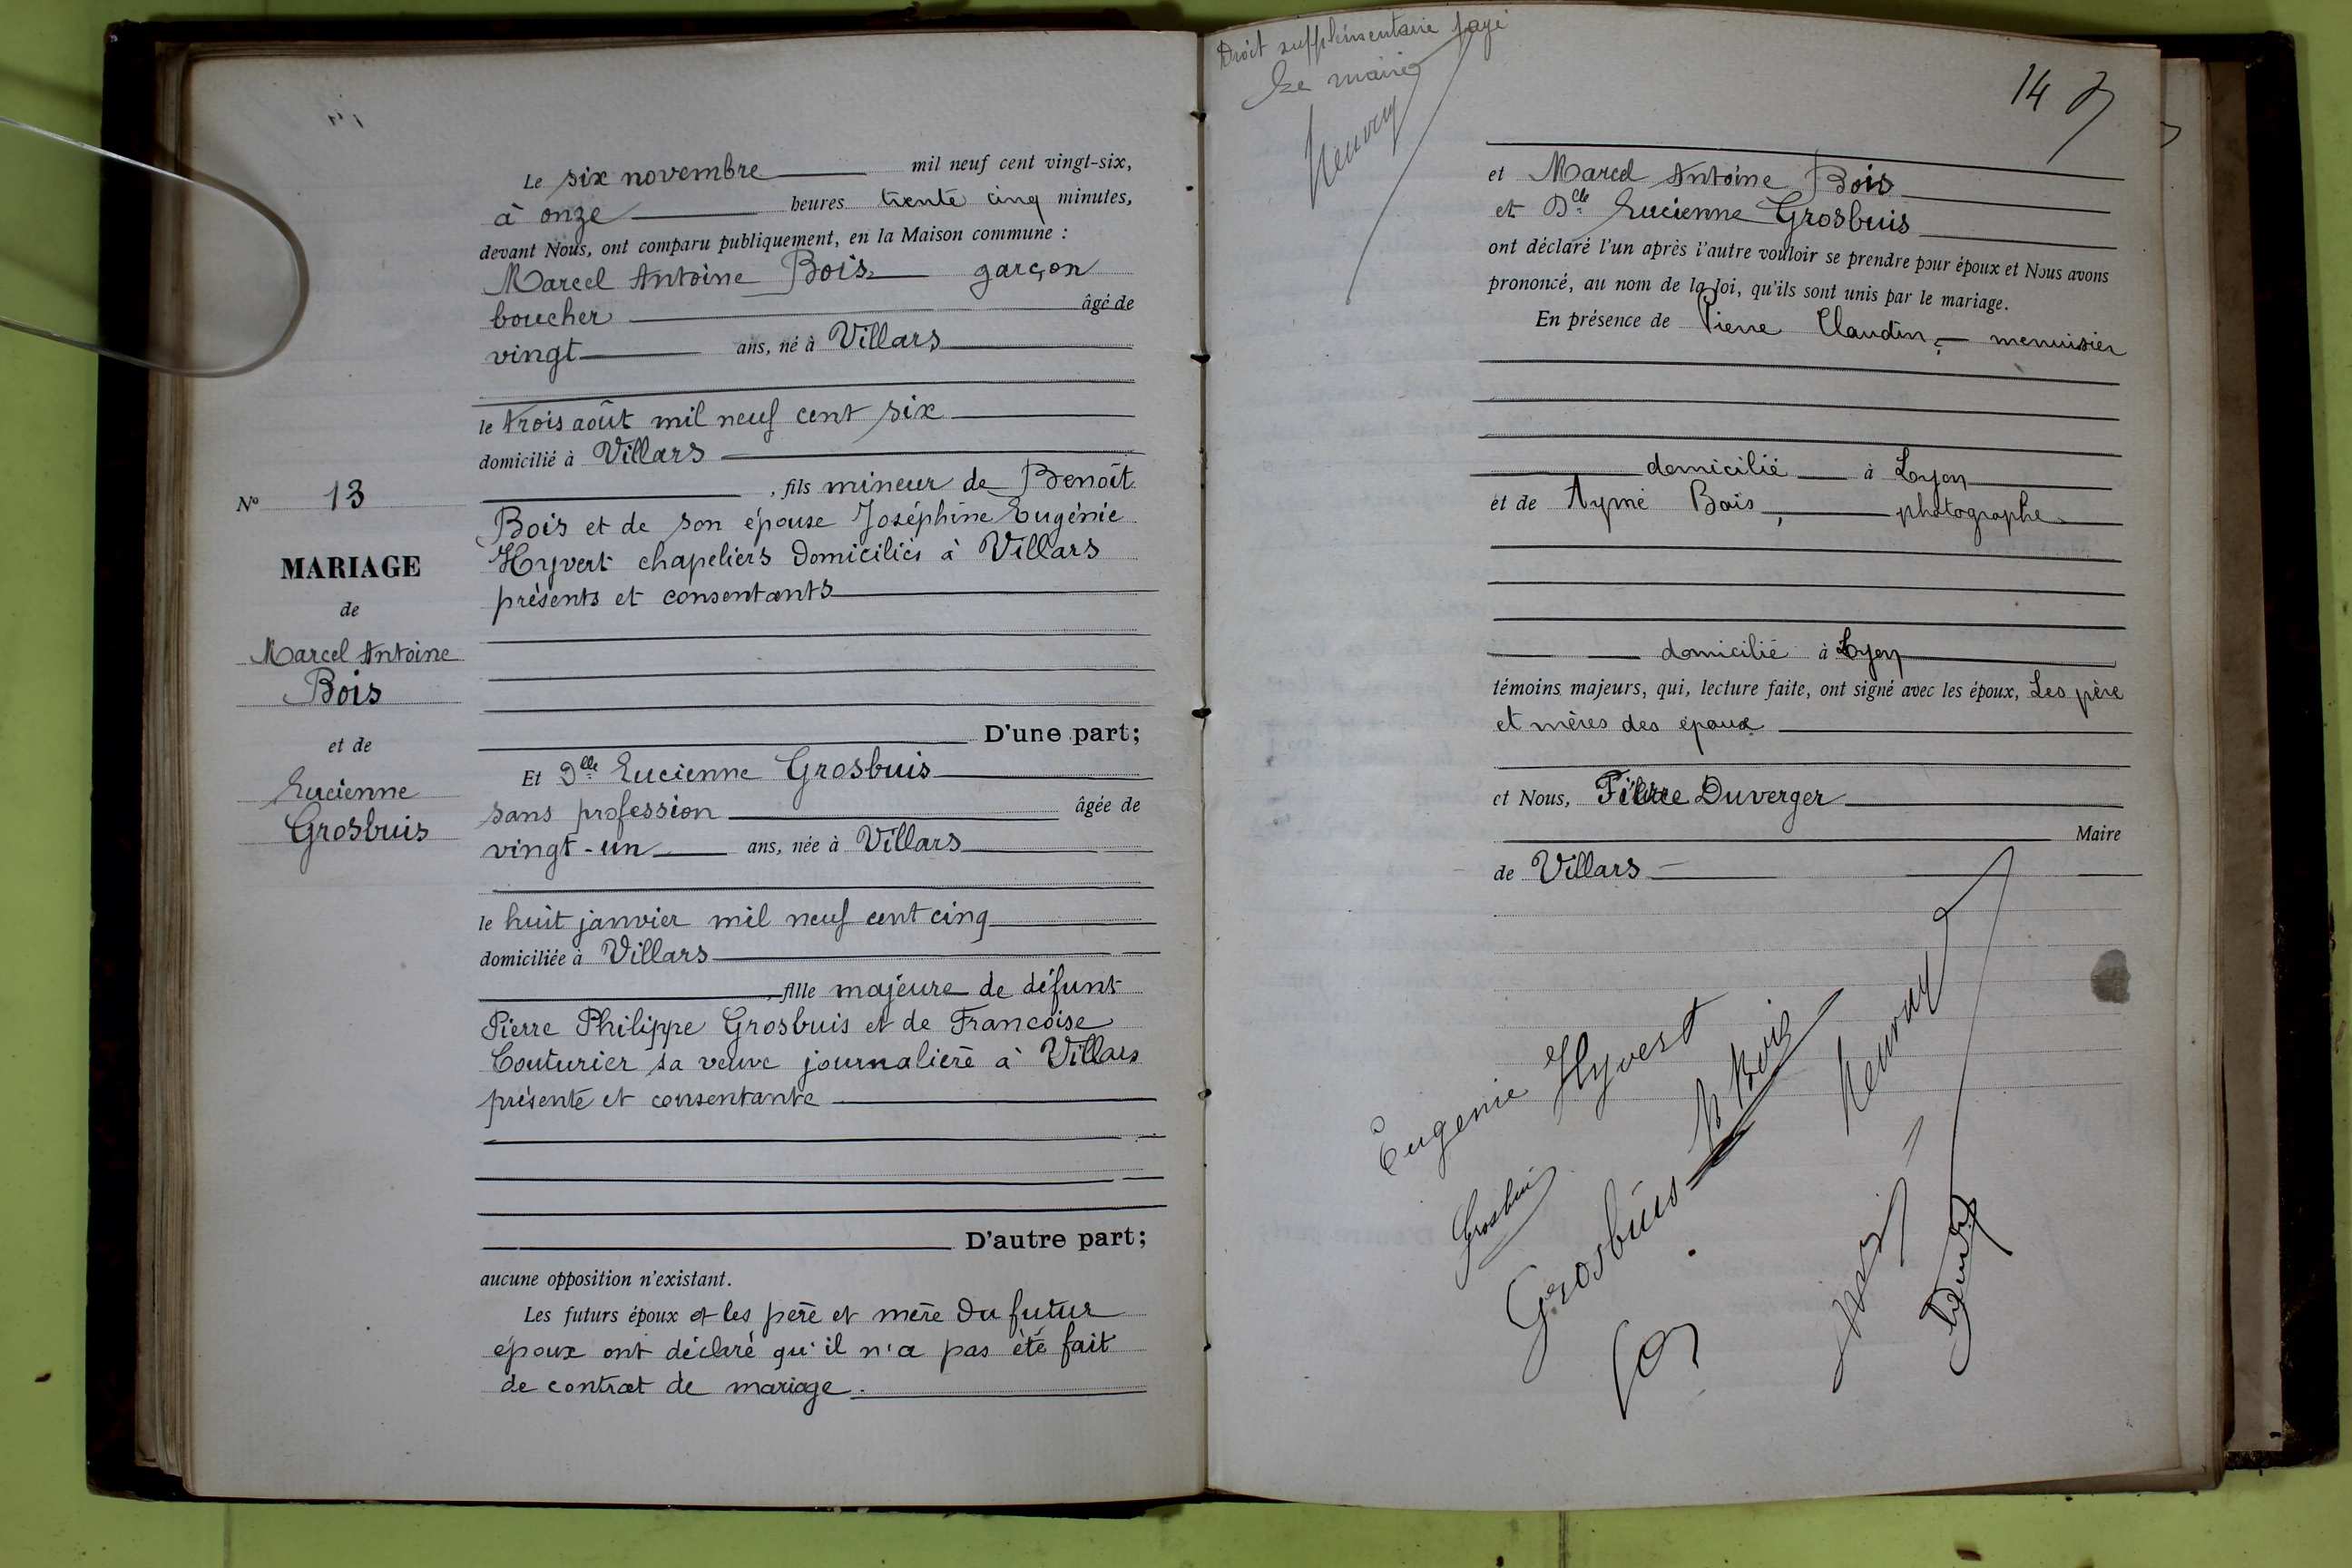 Le six novembre mil neuf cent vingt-six,
à onze heures trente cinq minutes,
devant Nous, ont comparu publiquement, en la Maison commune :
Marcel Antoine Bois garçon
boucher âgé de
vingt ans, né à Villars
le trois août mil neuf cent six
domicilié à Villars
, fils mineur de Benoît
Bois et de son épouse Joséphine Eugénie
Hyvert chapeliers domiciliés à Villars
présents et consentants
D'une part;
Et Dlle Lucienne Grosbuis
sans profession âgée de
vingt-un ans, née à Villars
le huit janvier mil neuf cent cinq
domiciliée à Villars
, fille majeure de défunt
Pierre Philippe Grosbuis et de Francoise
Couturier sa veuve journalière à Villars
présente et consentante
D'autre part;
aucune opposition n'existant.
Les futurs époux et les père et mère du futur
époux ont déclaré qu'il n'a pas été fait
de contrat de mariage.
N° 13
MARIAGE
de
Marcel Antoine
Bois
et de
Lucienne
Grosbuis
Droit supplémentaire payé
Le maire
14
et Marcel Antoine Bois
et Dlle Lucienne Grosbuis
ont déclaré l'un après l'autre vouloir se prendre pour époux et Nous avons
prononcé, au nom de la loi, qu'ils sont unis par le mariage.
En présence de Pierre Claudin, menuisier
domicilié à Lyon
et de Aymé Bois, photographe
domicilié à Lyon
témoins majeurs, qui, lecture faite, ont signé avec les époux, Les père
et mères des époux
et Nous, Duverger
Maire
de Villars
Eugenie Hyvert
B Bois
Grosbuis
Grosbuis